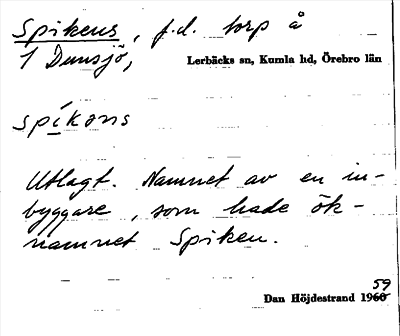 Spikens, f.d. torp å
1 Dunsjö,
Lerbäcks sn, Kumla hd, Örebro län
spikons
Utlagt. Namnet av en in-
byggare, som hade ök-
namnet Spiken.
59
Dan Höjdestrand 1960